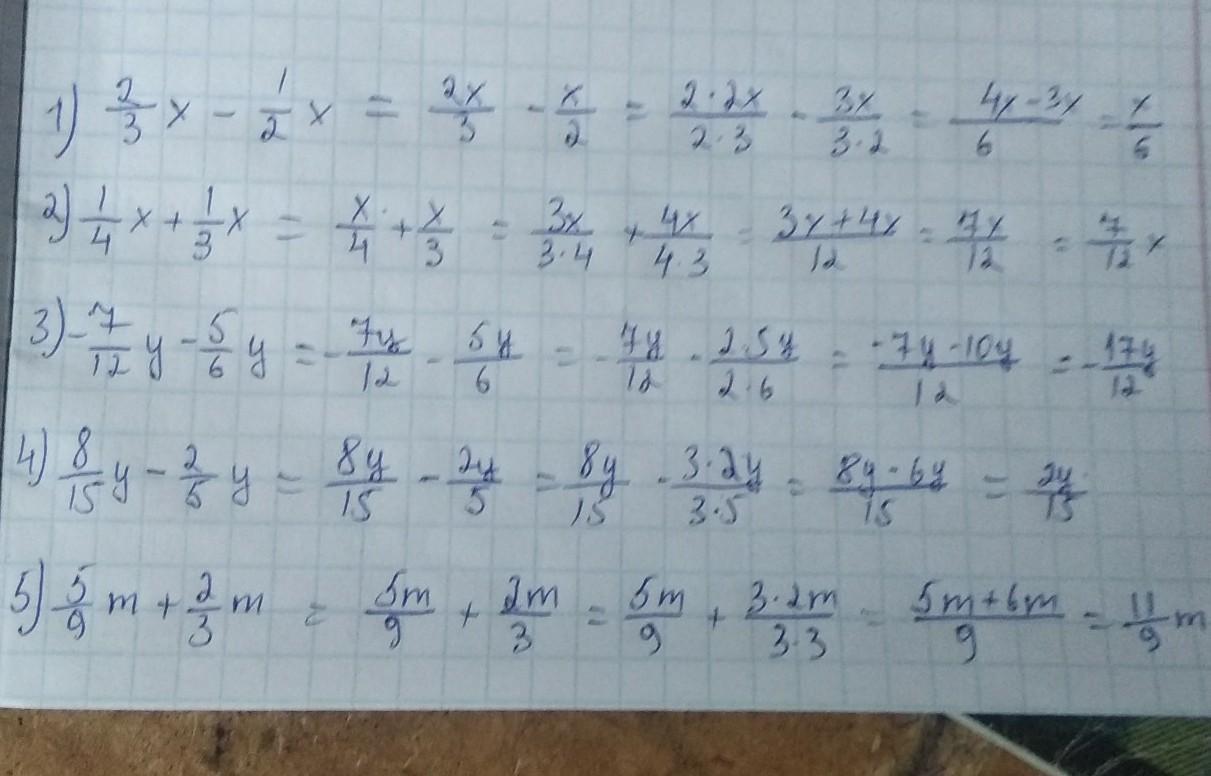 1) 2/3 x - 1/2 x = 2x/3 - x/2 = 2·2x/2·3 - 3x/3·2 = 4x-3x/6 = x/6
2) 1/4 x + 1/3 x = x/4 + x/3 = 3x/3·4 + 4x/4·3 = 3x+4x/12 = 7x/12 = 7/12 x
3) -7/12 y - 5/6 y = -7y/12 - 5y/6 = -7y/12 - 2·5y/2·6 = -7y-10y/12 = -17y/12
4) 8/15 y - 2/5 y = 8y/15 - 2y/5 = 8y/15 - 3·2y/3·5 = 8y-6y/15 = 2y/15
5) 5/9 m + 2/3 m = 5m/9 + 2m/3 = 5m/9 + 3·2m/3·3 = 5m+6m/9 = 11/9 m